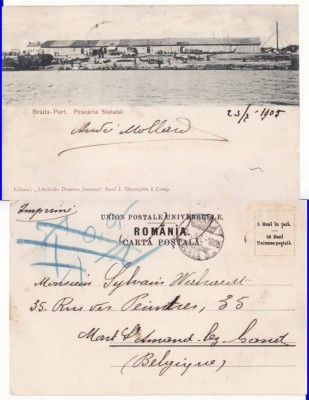 Brăila-Port. Pescăria Statului.
23/2 - 1905
André Mollard
Editura: „Librăriile Dumitru Ionescu" Succ I. Gheorghiu & Comp.
Imprimé
UNION POSTALE UNIVERSELLE.
ROMÂNIA.
CARTA POSTALA
5 Bani în țară.
10 Bani
Uniunea poștală.
Monsieur Sylvain
35. Rue des Peintres, 35
Mont St Amand-lez-Gand
(Belgique)